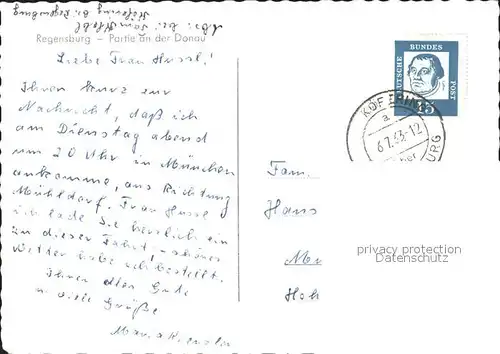 Abs.: bei Sam
Köfering b. Regensburg
Regensburg – Partie an der Donau
Liebe Frau Hussl!
Ihnen kurz zur
Nachricht, daß ich
am Dienstag abend
um 20 Uhr in München
ankomme, aus Richtung
Mühldorf. Frau Hussl
ich lade Sie herzlich ein
zu dieser Fahrt, – schönes
Wetter habe ich bestellt.
Ihnen alles Gute
u. viele Grüße
Maria
DEUTSCHE BUNDESPOST
KÖFERING
a
6.7.63.-12
über
BURG
Fam.
Hans
Hoh
privacy protection
Datenschutz